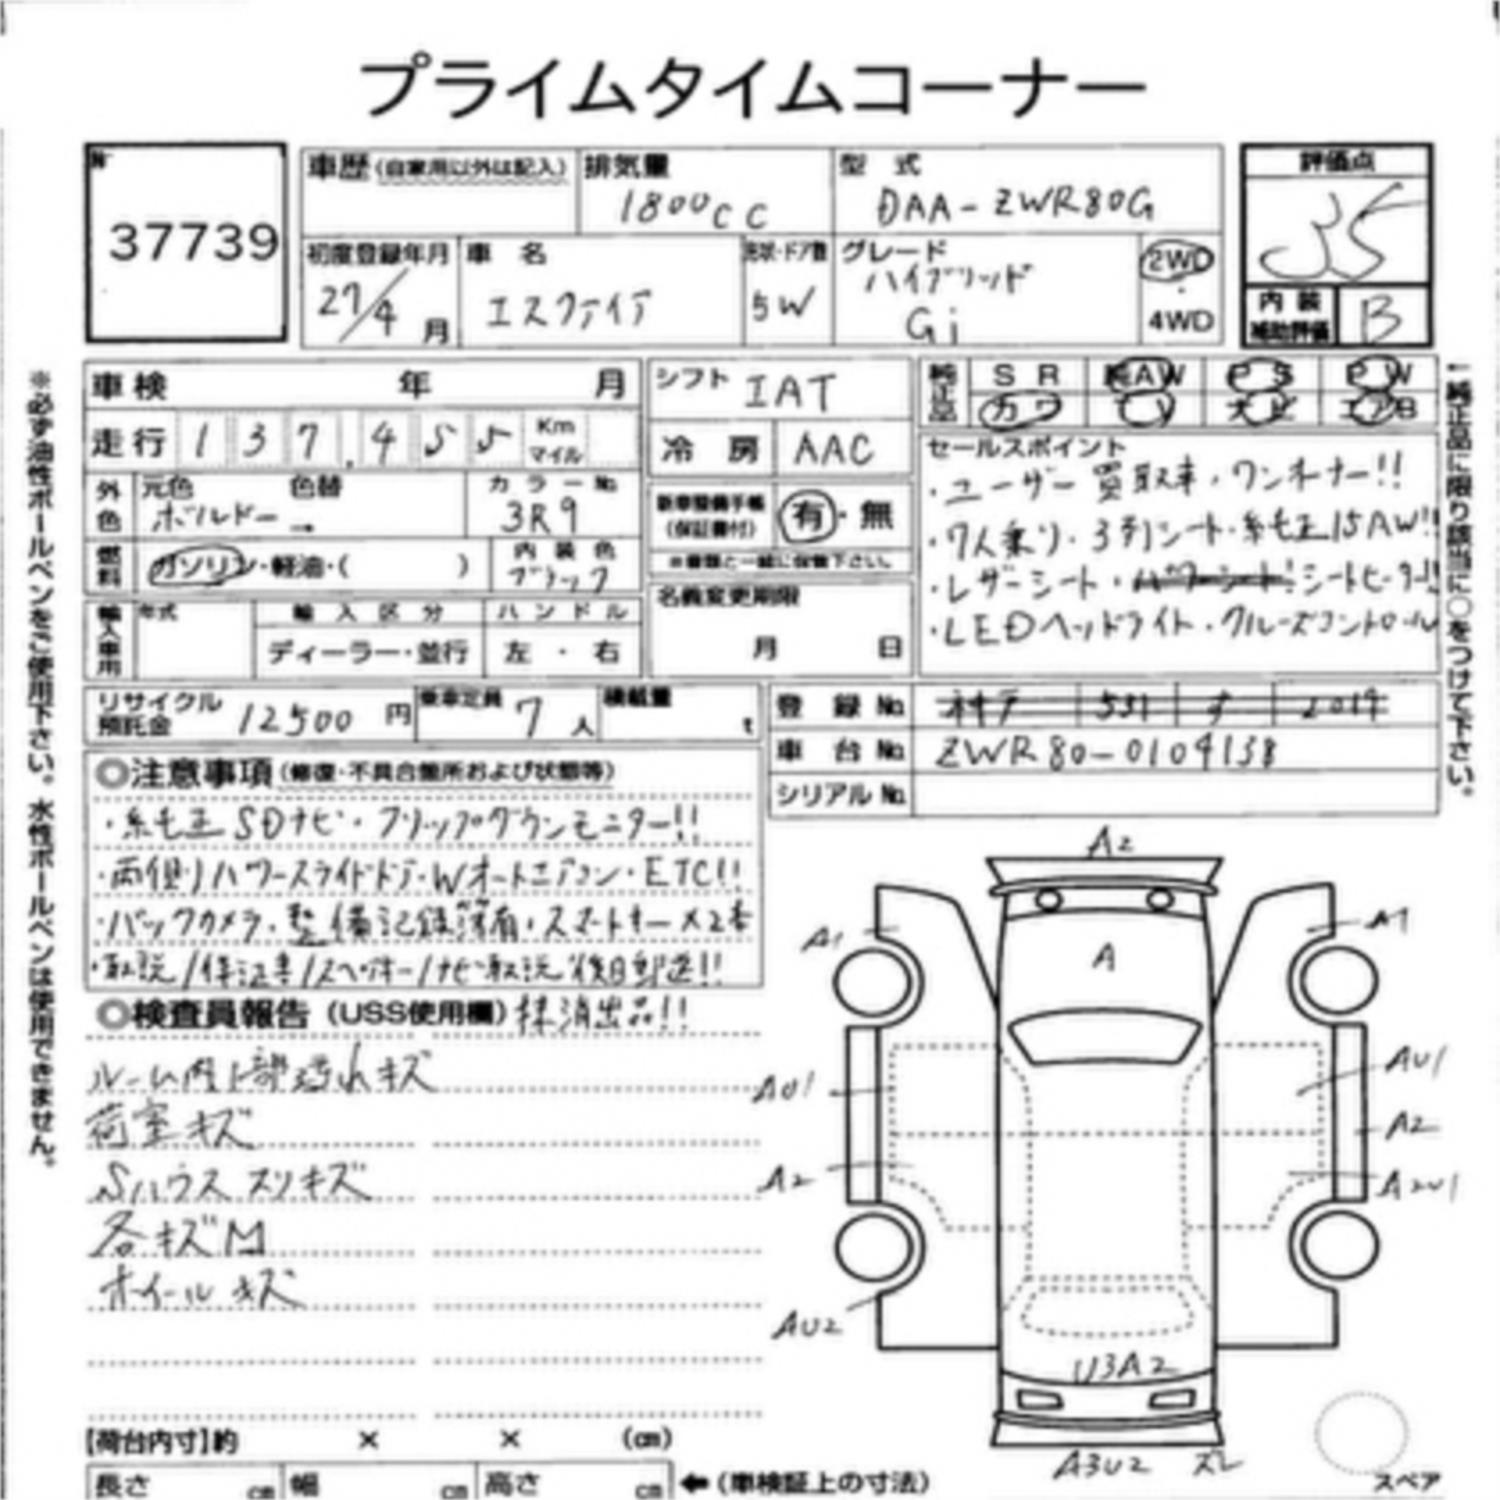 プライムタイムコーナー
37739
車歴 (自家用以外は記入)
排気量 1800cc
型式 DAA-ZWR80G
評価点 3.5
初度登録年月 27/4月
車名 エスクァイア
形状・ドア数 5W
グレード ハイブリッド Gi
2WD・4WD
内装補助評価 B
車検 年 月
走行 137,455 Km マイル
シフト IAT
冷房 AAC
純正品 SR 純AW PS PW
カワ TV ナビ エアB
外色 元色 ボルドー → 色替
カラーNo. 3R9
燃料 ガソリン・軽油・( )
内装色 ブラック
新車整備手帳(保証書付) 有・無
※書類と一緒に保管下さい。
名義変更期限 月 日
輸入車用 年式 輸入区分 ディーラー・並行
ハンドル 左・右
セールスポイント
・ユーザー買取車・ワンオーナー!!
・7人乗り・3列シート・純正15AW!!
・レザーシート・パワーシート!シートヒーター!!
・LEDヘッドライト・クルーズコントロール
←純正品に限り該当に○をつけて下さい。
※必ず油性ボールペンをご使用下さい。水性ボールペンは使用できません。
リサイクル預託金 12500円
乗車定員 7人
積載量 t
登録No. 神戸 531 す 2019
車台No. ZWR80-0104138
シリアルNo.
◎注意事項 (修復・不具合箇所および状態等)
・純正SDナビ・フリップダウンモニター!!
・両側パワースライドドア・Wオートエアコン・ETC!!
・バックカメラ・整備記録簿有・スマートキー×2本
・取説/保証書/スペアキー/ナビ取説 後日郵送!!
◎検査員報告 (USS使用欄) 抹消出品!!
ルーム内上部汚れキズ
荷室キズ
Sハウススリキズ
各キズM
ホイールキズ
A2
A1
A1
A
AU1
AU1
A2
A2
A2U1
AU2
U3A2
A3U2 ズレ
スペア
【荷台内寸】約 × × (cm)
長さ cm 幅 cm 高さ cm ←(車検証上の寸法)